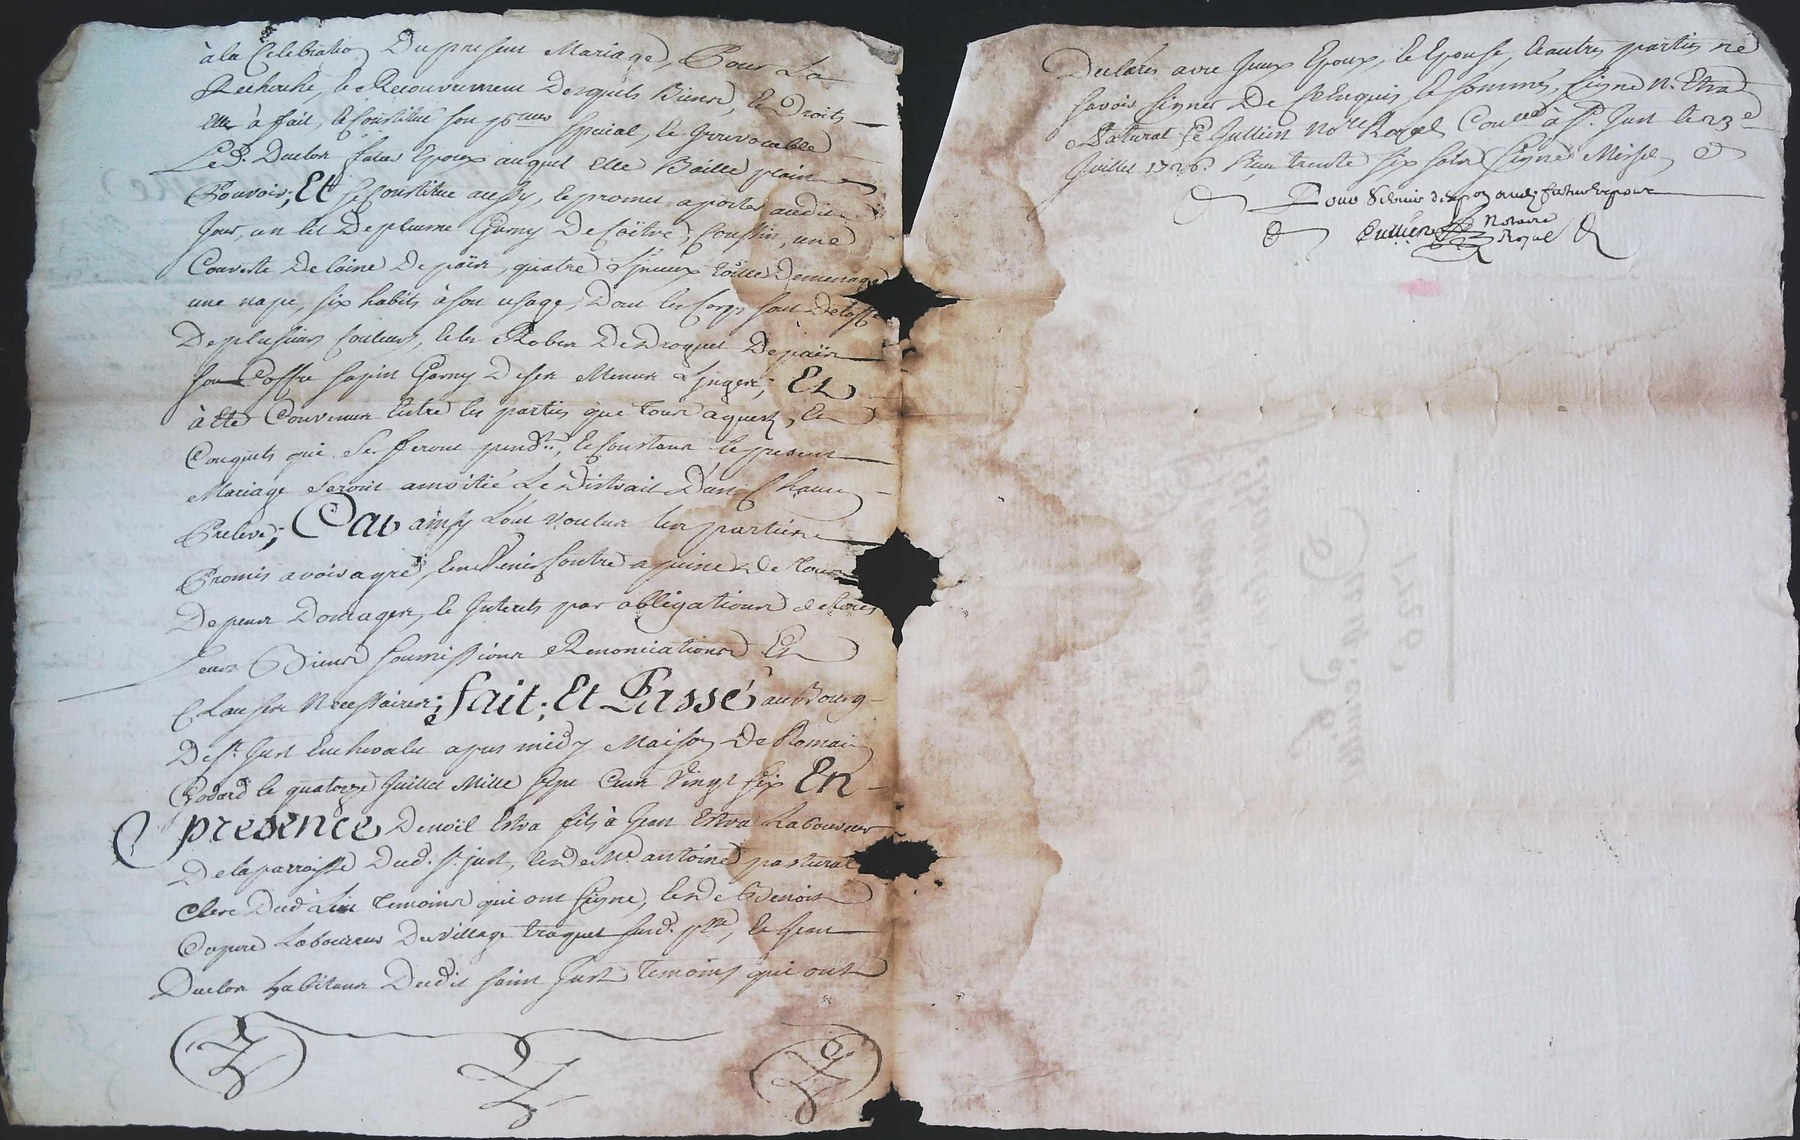 à la Celebration Du present Mariage, Pour La
Recherche, le Recouvrement Desquels Biens, le Droits
elle à fait, le Constitué son special, le Irrevocable
Led. Duclos futur Epoux auquel elle Baille plain
Pouvoir; Et se Constitue aussy, le promet aporter audit
Jour, un lit De plume Garny De Coussin, une
Couverte De laine De païs, quatre Linceux toille De menage
une nape, six habits à son usage, Dont les Corps sont D'étoffe
De plusieurs Couleurs, le les Robes De Droguet De païs
son Coffre sapin Garny De ses Menus Linges; Et
à été Convenus Entre les parties que tous aquets, le
Conquets que se feront pendt. le Constant le present
Mariage seront a moitié Le Distrait D'un Chacun
Prelevé; Car ainsy L'ont Voulus les parties
Promis avoir agré, venir Contre a peine De tous
Depens Domages, le Interets par obligations De
leurs Biens soumissions Renonciations Et
Clauses Necessaires; fait; Et Passé au Bourg
De St. Just Enchevalet apres midy Maison De Romain
Godard le quatorze Juillet Mille sept Cent Vingt six En
presence De noël Estra fils à Jean Estra Laboureur
De la parroisse Dud. St. just, le De Me. antoine pastural
Clerc Dud. Lieu temoins qui ont signé, le De Benoit
Laboureur Du Village traquet susd. psse, le Jean
Duclos Habitans Dudit saint Just temoins qui ont
Declarés avec Iceux Epoux, le Epouse, le autres parties ne
savoir signer De Ce Enquis le sommés, signé N. Estra
Patural le Jullien Note Royal Conellé à St. Just le 23e
Juillet 1726. Reçu trente six sols signé Missel
Pour Futur Epoux
Jullien Notaire
Royal